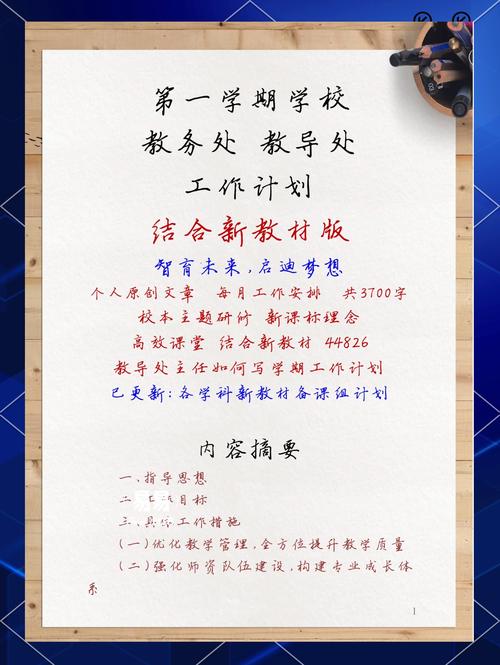 第一学期学校
教务处 教导处
工作计划
结合新教材版
智育未来,启迪梦想
个人原创文章 每月工作安排 共3700字
校本主题研修 新课标理念
高效课堂 结合新教材 44826
教导处主任如何写学期工作计划
已更新:各学科新教材备课组计划
内容摘要
一、指导思想
二、工作目标
三、具体工作措施
(一)优化教学管理,全方位提升教学质量
(二)强化师资队伍建设,构建专业成长体
系
1